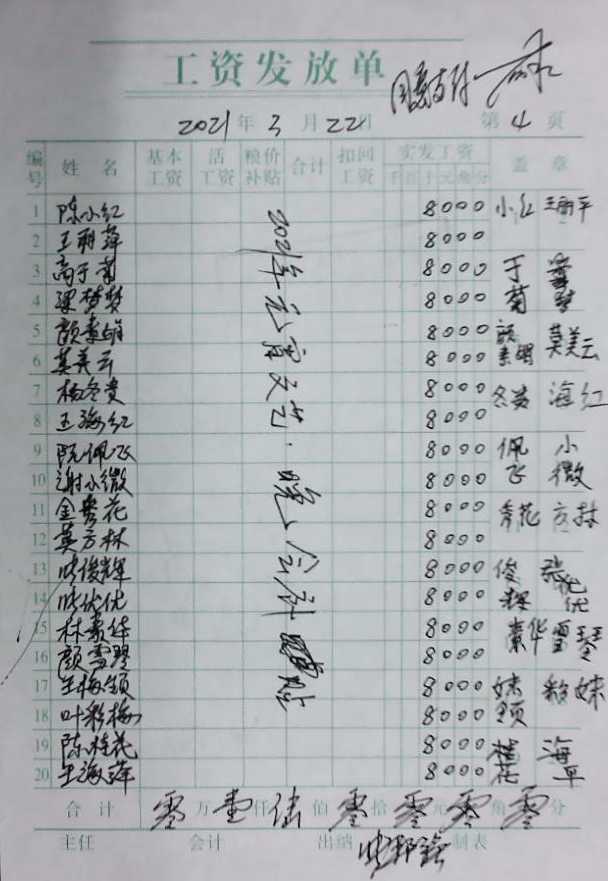 工资发放单
同意支付
2021年3月22日 第4页
编号 姓名 基本工资 活工资 粮价补贴 合计 扣回工资 实发工资 千百十元角分 盖章
2021年元宵文艺·晚会补贴
1 陈小红 8000 小红 王丽平
2 王丽萍 8000
3 高于菊 8000 于菊
4 梁梦梦 8000 梦梦
5 颜素娟 8000 颜素娟 莫美云
6 莫美云 8000
7 杨冬贵 8000 冬贵 海红
8 王海红 8000
9 阮佩飞 8000 佩飞 小微
10 谢小微 8000
11 金秀花 8000 秀花 方林
12 莫方林 8000
13 张俊辉 8000 俊辉 张优优
14 张优优 8000
15 林素华 8000 素华 雪琴
16 颜雪琴 8000
17 王梅领 8000 妹领 彩妹
18 叶彩梅 8000
19 陈桂花 8000 桂花 海平
20 王海萍 8000
合计 零万壹仟陆佰零拾零元零角零分
主任 会计 出纳 制表